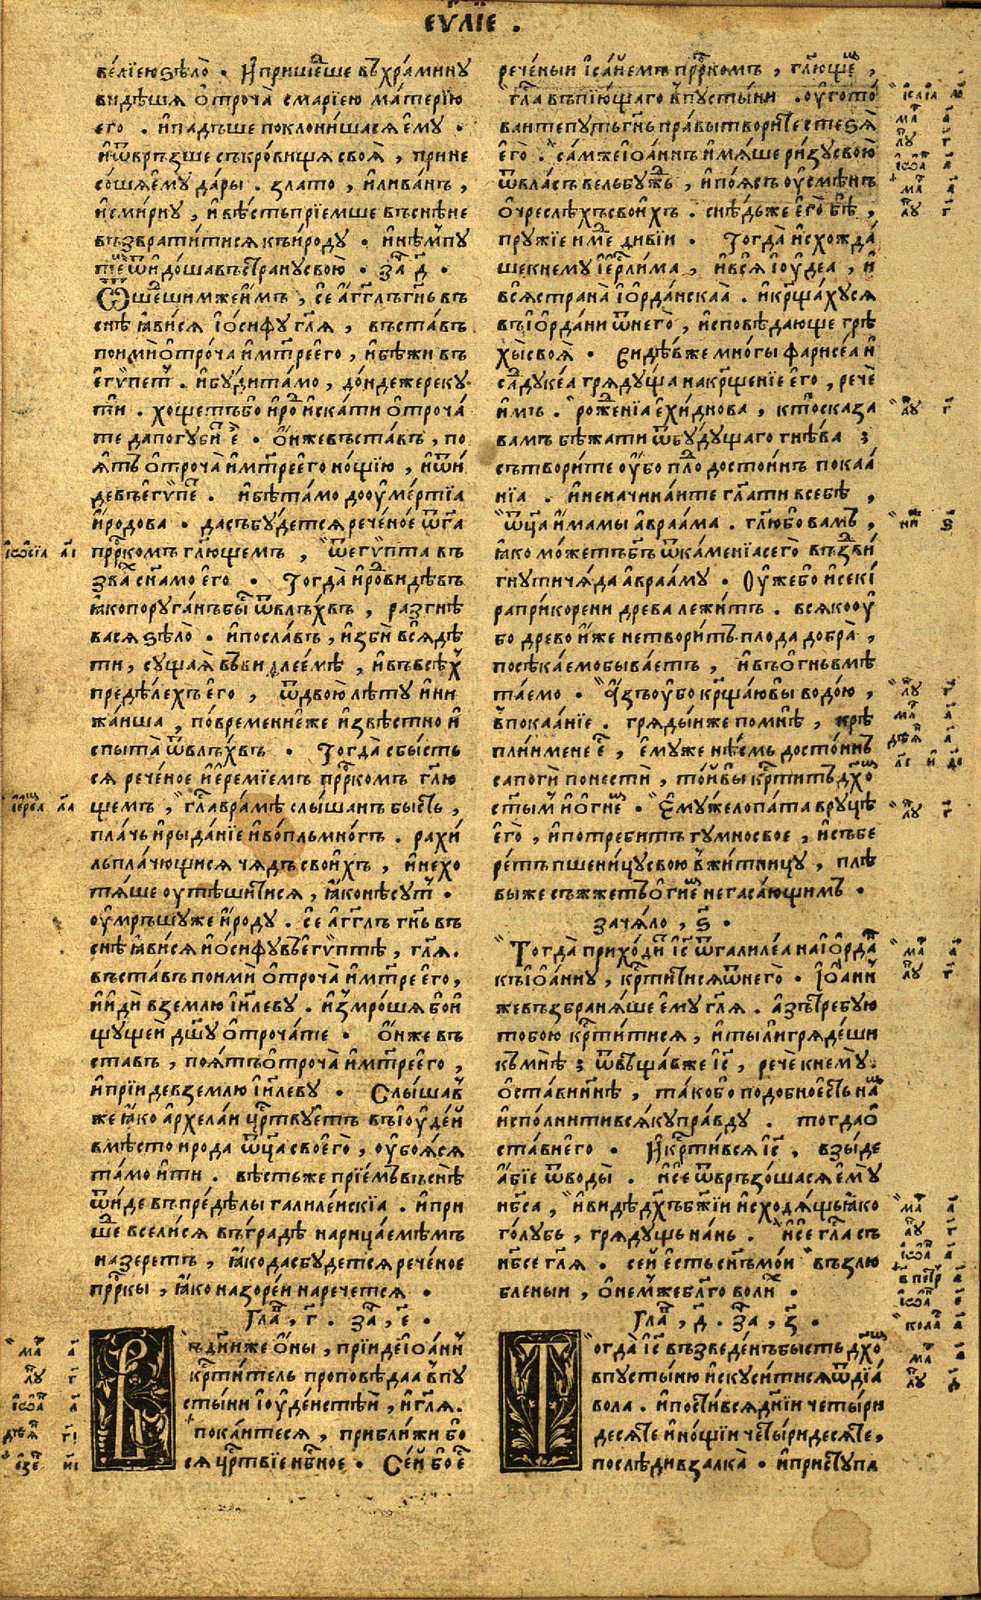 ЕѴⷢ҇ЛЇЕ .
ве́лїею ѕѣло̀ . И҆ прише́дше въ хра́мину
ви́дѣша ѻ҆троча̀ с марїею ма́терїю
его . и҆ па́дъше поклони́шася є҆му .
и҆ ѿвръ́зше съкро́вищя своя̀ , прине
со́шя є҆му да́ры . зла́то , и҆ лива́нъ ,
и҆ сми́рну , и҆ вѣ́сть прїе́мше въ снѣ не
възврати́тися къ и҆́роду . и҆ и҆нѣ́м пу
те́м ѿи҆до́ша въ стра́ну свою̀ . за҄ , д҃ .
Ѿше́дшим же и҆̀мъ , сѐ а҆́гг҃лъ гн҃ь въ
снѣ̀ ꙗ҆ви́ся і҆ѻ́сифу гл҃я , въста́въ
поимѝ ѻ҆троча̀ и҆ мт҃ре є҆го̀ , и҆ бѣжи въ
є҆гѵ́пет . и҆ бу́ди та́мо , до́ндеже реку
тѝ . хо́щетъ бо и҆́род и҆ска́ти ѻ҆троча́
те да погуби́т є . ѻ҆́н же въста́въ , по
я́тъ ѻ҆троча̀ и҆ мт҃ре є҆го̀ но́щїю , и҆ ѿи́
де въ є҆гѵ́пет . и҆ бѣ̀ та́мо до ѹ҆ме́ртїа
и҆́родова . да съ бу́дется рече́ное ѿ г҃а
прⷪ҇ркомъ гл҃ющемъ , ѿ є҆гѵ́пта въ
зва́х сн҃а мо е҆го . Тогда̀ и҆́род видѣвъ
ꙗ҆ко пору́ганъ бы́сть ѿ влъ́хвъ , разгнѣ
вася ѕѣло̀ . и҆ посла́въ , и҆збѝ вся дѣ
ти , су́щая въ ви длее́мѣ , и҆ въ всѣ́х
предѣ́лехъ є҆го , ѿ двою̀ лѣту и҆ ни
жа́йша , по вре́мени є҆́же и҆звѣ́стно и҆
спыта̀ ѿ влъ́хвъ . Тогда̀ сбы́сть
ся рече́ное и҆ єреміе́мъ прⷪ҇ркомъ гл҃ю
щемъ , гла́с в ра́мѣ слы́шанъ бы́сть ,
пла́чь и҆ рыда́нїе и҆ во́пль мно́гъ . рахи́
ль пла́чющися чя́дъ свои҆́хъ , и҆ не хо
тя́ше ѹтѣ́шитися , ꙗ҆ко не су́т .
ѹ҆мръ́шу же и҆́роду . сѐ а҆́гг҃лъ гн҃ь въ
снѣ̀ ꙗ҆ви́ся и҆ѻ́сифу въ є҆гѵ́птѣ , гл҃я .
въста́въ поимѝ ѻ҆троча̀ и҆ мт҃ре є҆го ,
и҆ и҆дѝ в зе́млю і҆и҃леву . и҆зм́роша бо и҆
щущеѝ дш҃у ѻ҆троча́те . ѻ҆́н же въ
ста́въ , поя́тъ ѻ҆троча̀ и҆ мт҃ре є҆го ,
и҆ прїи́де в зе́млю і҆и҃леву . Слы́шав
же ꙗ҆ко а҆рхела́и црⷭ҇твуетъ въ і҆ѹде́и
в мѣ́сто и҆́рода ѿц҃а своего̀ , ѹ҆боя́ся
та́мо и҆ти . вѣ́сть же прїе́мъ въ снѣ̀
ѿи́де въ пре́дѣлы галиле́искїа . и҆ при
ше́д всели́ся въ гра́дѣ нарица́емѣмъ
на́заретъ , ꙗ҆ко да сбу́дется рече́ное
прⷪ҇ркы , ꙗ҆ко назоре́и нарече́тся .
Глⷡ҇а , г҃ . за҄ , е҃ .
Въ дни́ же ѻ҆́ны , прїи́де і҆ѻа́ннъ
крⷭ҇ти́тель проповѣ́даа в пу
сты́ни і҆ѹде́истѣи , и҆ гл҃я .
пока́итеся , прибли́жи бо
ся црⷭ҇твїе нбⷭ҇ное . Се́й бо е҆
рече́ныи і҆са́ием прⷪ҇ркомъ , гл҃юще ,
гла́съ въпїю́щаго в пу́стыни . ѹ҆гото́
ваите пу́ть гн҃ь пра́вы твори́те сте ѕя̀
є҆го̀ . са́м же і҆ѻа́ннъ и҆мя́ше ри́зу свою
ѿ вла́съ вельбу́ждь , и҆ по́ясъ ѹ҆смѣ́нъ
ѻ҆ чреслѣ́хъ свои҆́хъ . снѣ́дь же є҆го̀ бѣ̀ ,
пру́жіе и ме́д ди́вїи . Тогда̀ и҆схожда́
ше к нему і҆ерⷭ҇ли́ма , и҆ вся̀ і҆ѹ́деа , и҆
вся̀ страна̀ і҆ѻрда́нскаа . и҆ крⷭ҇ща́хуся
въ і҆ѻрда́ни ѿ него , и҆сповѣ́дающе грѣ
хы̀ своя̀ . Ви́дѣв же мно́гы фарисе́а и҆
садуке́а гряду́ща на крⷭ҇ще́нїе є҆го , рече
и҆́мъ . рожде́нїа є҆хи́днова , кто̀ сказа
вамъ бѣжа́ти ѿ бу́дущаго гнѣ́ва ;
сътвори́те ѹ҆́бо пло́д досто́инъ покаа́
нїа . и҆ не начина́ите гл҃ати в себѣ̀ ,
ѿц҃а и҆́мамы а҆враа́ма . гл҃ю бо ва́мъ ,
ꙗ҆ко мо́жетъ бг҃ъ ѿ ка́менїа сего̀ въздви́
гнути чя́да а҆враа́му . Ѹ҆же́ бо и҆ секи́
ра при ко́рени дре́ва лежи́тъ . вся́ко ѹ҆
бо дре́во и҆́же не твори́тъ плода̀ добра̀ ,
посѣка́емо быва́етъ , и҆ въ ѻ҆́гнь вмѣ
та́емо . А҆зъ ѹ҆бо крⷭ҇ща́ю вы̀ водо́ю ,
в покаа́нїе . гряды́и же по мнѣ̀ , крѣ
плїи мене́ е҆ , є҆му́же нѣ́смь досто́инъ
сапогѝ понестѝ , то́й вы̀ крⷭ҇ти́тъ дх҃ѻм
ст҃ы́м и҆ ѻ҆гне́м . Є҆му́же лопа́та в руцѣ̀
є҆го̀ , и҆ потреби́тъ гумно̀ свое , и҆ събе
ре́тъ пшени́цу свою в жи́тницу , плѣ́
вы же съжже́тъ ѻ҆гне́м негаса́ющимъ .
зачя́ло , ѕ҃ .
Тогда̀ прихо́дит і҆с҃ ѿ галиле́а на і҆ѻрда́н
къ і҆ѻа́нну , крⷭ҇ти́тися ѿ него . І҆ѻа́нн
же възбраня́ше є҆му гл҃я . а҆́зъ тре́бую
тобо́ю крⷭ҇ти́тися , и҆ ты́ ли гряде́ши
къ мнѣ̀ ; ѿвѣ́щав же і҆с҃ , речѐ к нему̀ .
ѻ҆ста́ви ны́нѣ , та́ко бо подо́бно є҆́сть на́м
и҆спо́лнити вся́ку пра́вду . тогда̀ ѻ҆
ста́ви є҆го . И҆ крⷭ҇ти́вся і҆с҃ , взы́де
а҆́бїе ѿ воды̀ . и҆ сѐ ѿвръзо́шася є҆му
нб҃са , и҆ ви́дѣ дх҃ъ бж҃їи и҆сходя́щь ꙗ҆ко
го́лубь , гряду́щь на́нь . и҆ сѐ гла́съ съ
нб҃се гл҃я . сей є҆сть сн҃ъ мо́и възлю
бле́ныи , ѻ҆ не́мже блг҃ово́лих .
Глⷡ҇а , д҃ . за҄ , з҃ .
Тогда̀ і҆с҃ възведе́нъ бы́сть дх҃ѻм
в пусты́ню и҆скуси́тися ѿ дїа́
вола . и҆ пости́вся дні́и четы́ри
деся́те и҆ но́щїи четы́ридеся́те ,
послѣдѝ взалка̀ . и҆ присту́пль